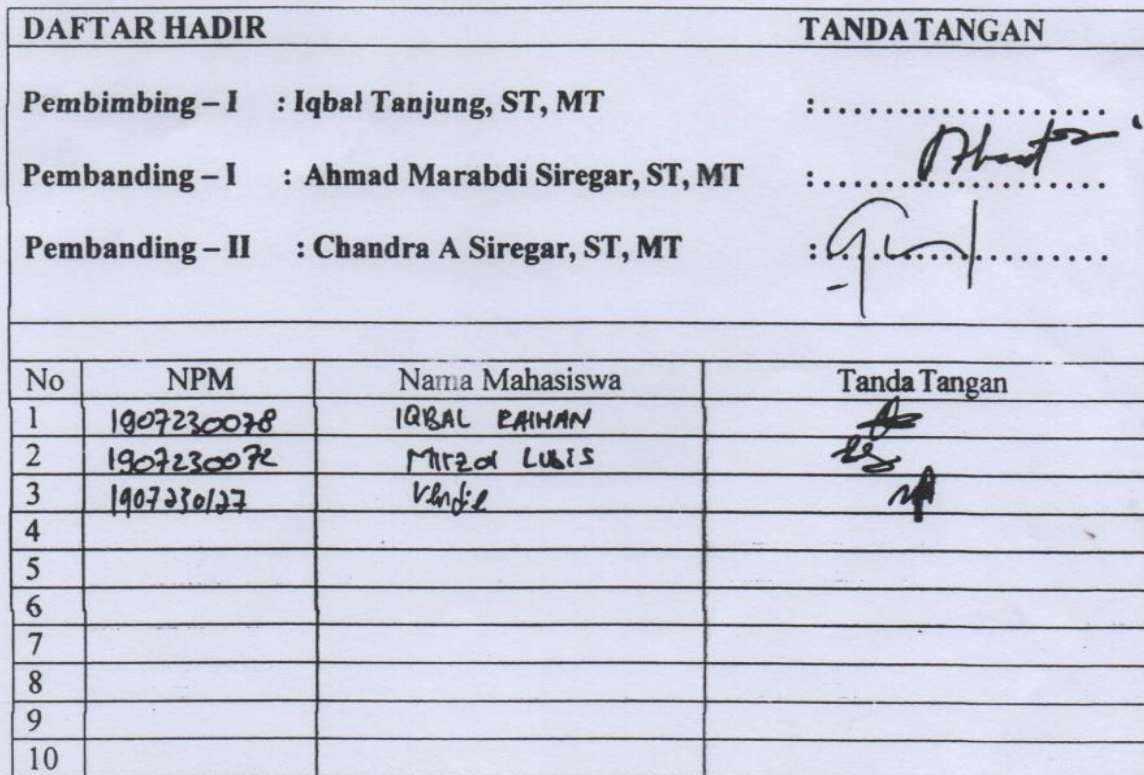 DAFTAR HADIR TANDA TANGAN
Pembimbing – I : Iqbal Tanjung, ST, MT : ......................
Pembanding – I : Ahmad Marabdi Siregar, ST, MT : ......................
Pembanding – II : Chandra A Siregar, ST, MT : ......................
No NPM Nama Mahasiswa Tanda Tangan
1 1907230078 IQBAL RAIHAN
2 1907230072 Mirza LUBIS
3 1907230127
4
5
6
7
8
9
10